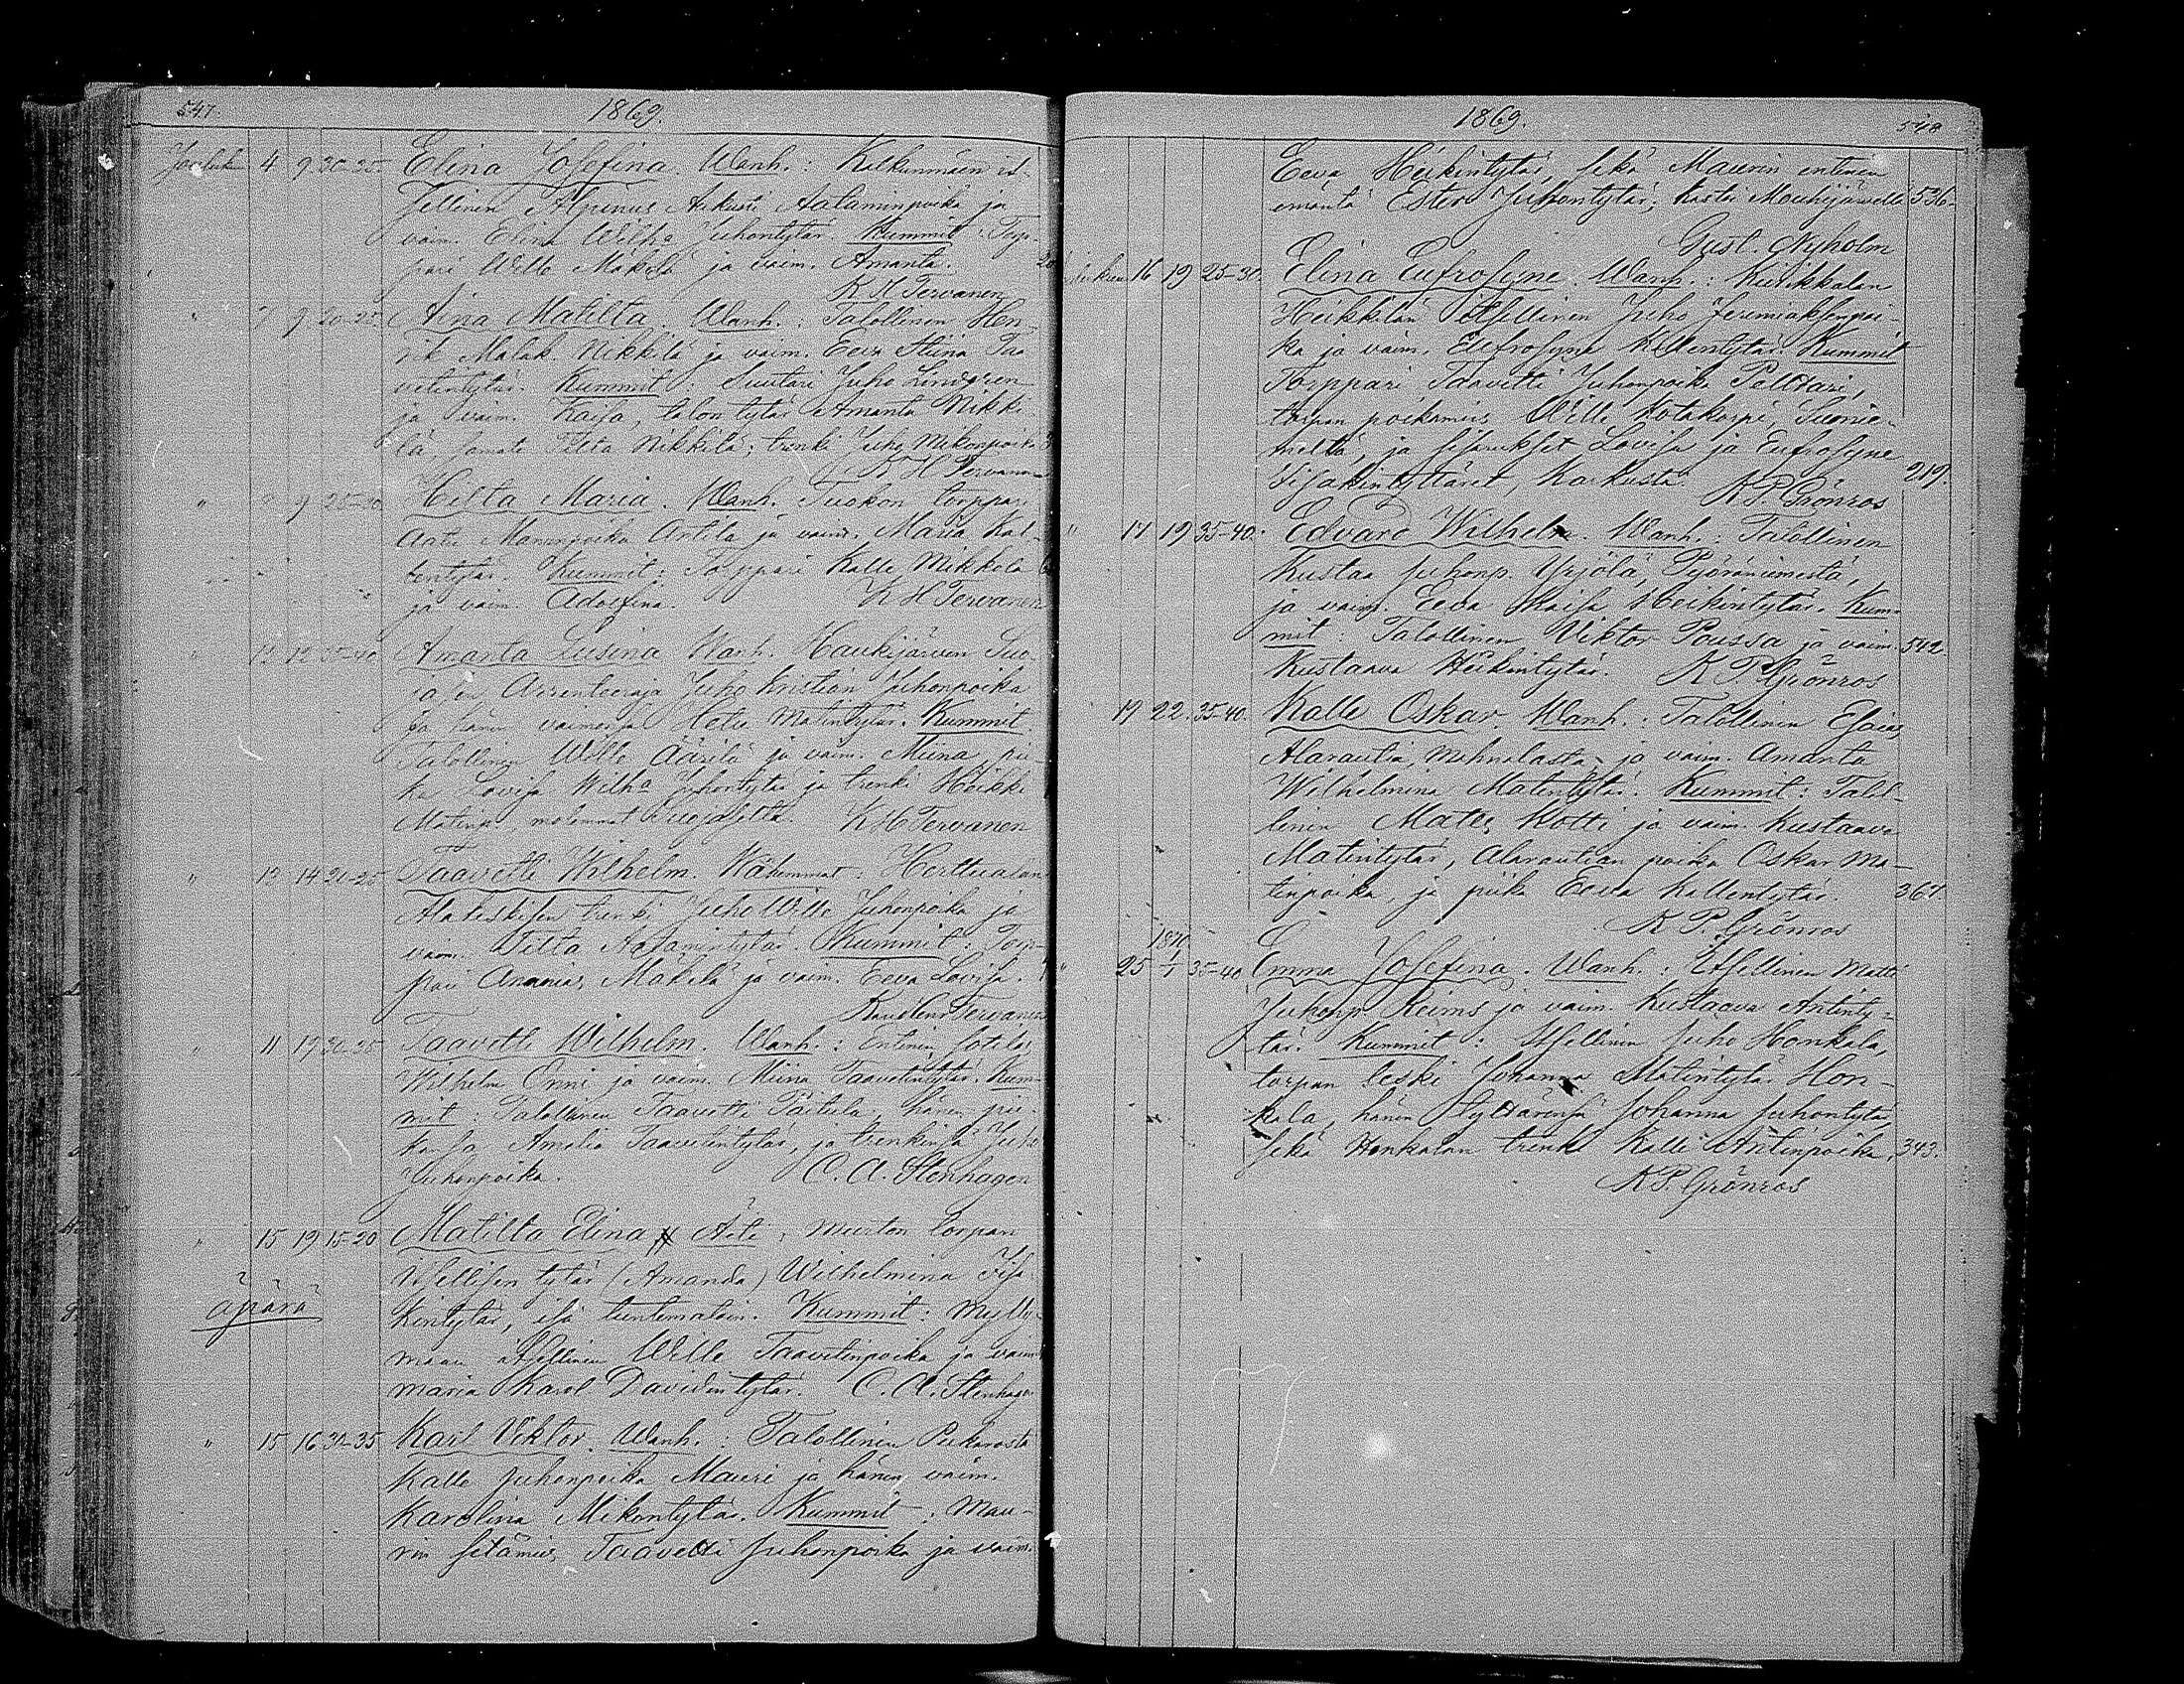 547. 1869.
Jouluk. 4 9 30-35. Elina Josefina. Wanh.: Kalkunmäen it-
sellinen Alpinus Aukusti Aataminpoika ja
vaim. Elina Wilh:a Juhontytär. Kummit: Torp-
pari Wille Mäkelä ja vaim. Amanta.
K H Tervanen
" 7 9 20-25. Aina Matilta. Wanh.: Talollinen Hen-
rik Malak. Nikkilä ja vaim. Eeva Stiina Taa-
vetintytär. Kummit: Suutari Juho Lindgren
ja vaim. Kaisa, talon tytär Amanta Nikki-
lä, samate Tilta Nikkilä; trenki Juho Mikonpoika
K H Tervanen
" 9 25-30. Hilta Maria. Wanh. Tuokon torppari
Aatu Mananpoika Antila ja vaim. Maria Kal-
lentytär. Kummit: Torppari Kalle Mikkola
ja vaim. Adolfina. K H Tervanen
" 12 12 35-40 Amanta Lusina Wanh. Haukijärven Suo-
jasen Arrenteeraja Juho Kristian Juhonpoika
ja hänen vaimonsa Hetu Matintytär. Kummit:
Talollinen Wille Äärilä ja vaim. Miina, pii-
ka Lovisa Wilh:a Juhontytär ja trenki Heikki
Matinp., molemmat Suojaselta. K H Tervanen
" 12 14 20-25 Taavetti Wilhelm. Wahemmat: Herttualan
Alakeskisen trenki Juho Wille Juhonpoika ja
vaim. Tilta Aatamintytär. Kummit: Torp-
pari Ananias Mäkelä ja vaim. Eeva Lovisa.
Tervanen
" 11 19 30-35 Taavetti Wilhelm. Wanh.: Entinen sotilas
Wilhelm Onni ja vaim. Miina Taavetintytär. Kum-
mit: Talollinen Taavetti Päitula, hänen pii-
kansa Amalia Taavetintytär, ja trenkinsä Juha
Juhonpoika. C. A. Stenhagen
" 15 19 15-20 Matilta Elina. Äiti, Murton torpan
äpärä
itsellisen tytär (Amanda) Wilhelmina Iisa-
kintytär, isä tuntematoin. Kummit: Mylly-
maan itsellinen Wille Taavetinpoika ja vaim.
Maria Karol. Davidintytär. C. A. Stenhagen
" 15 16 30-35 Karl Viktor. Wanh.: Talollinen
Kalle Juhonpoika Mauri ja hänen vaim.
Karolina Mikontytär. Kummit: Mau-
rin setämies Taavetti Juhonpoika ja vaim.
1869. 548
Eeva Heikintytär, sekä Maurin entinen
emäntä Ester Juhontytär; kasti Mouhijärvellä 536.
Gust. Nyholm
16 19 25-30. Elina Eufrosyne. Wanh.: Kurikkalan
Heikkilän itsellinen Juho Jeremiaksenpoi-
ka ja vaim. Eufrosyne Kallentytär. Kummit
Torppari Taavetti Juhonpoika Palttari,
torpan poikamies Wille Kotakorpi, Suonie-
meltä, ja sisarukset Lovisa ja Eufrosyne
Iisakintyttäret, Karkusta. 219.
K P Grönros
" 17 19 35-40. Edvard Wilhelm. Wanh.: Talollinen
Kustaa Juhonp. Yrjölä, Pyöräniemestä,
ja vaim. Eeva Kaisa Heikintytär. Kum-
mit: Talollinen Viktor Poussa ja vaim. 542.
Kustaava Heikintytär. K P Grönros
19 22. 35-40. Kalle Oskar. Wanh.: Talollinen Esaias
Alarautia, Mahnalasta, ja vaim. Amanta
Wilhelmina Matintytär. Kummit: Talol-
linen Mates Kotti ja vaim. Kustaava
Matintytär, Alarautian poika Oskar Ma-
tinpoika, ja piika Eeva Kallentytär. 367.
K P. Grönros
1870
" 25 1/1 35-40 Emma Josefina. Wanh.: Itsellinen Matti
Juhonp. Reims ja vaim. Kustaava Antinty-
tär. Kummit: Itsellinen Juho Honkala,
torpan leski Johanna Matintytär Hon-
kala, hänen tyttärensä Johanna Juhontytär,
sekä Honkalan trenki Kalle Antinpoika. 343.
K P. Grönros